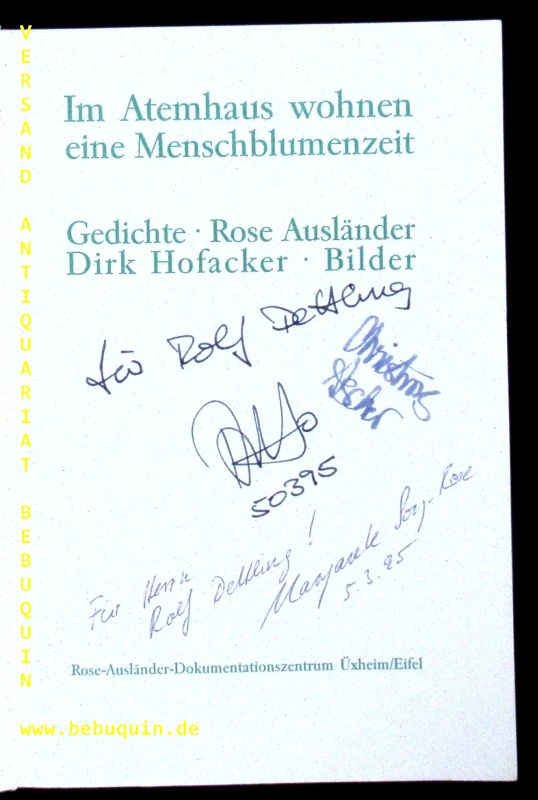 Im Atemhaus wohnen
eine Menschblumenzeit
Gedichte · Rose Ausländer
Dirk Hofacker · Bilder
für Rolf Dettling
Christine
50395
Für Herrn
Rolf Dettling!
Margarete
5.3.95
Rose-Ausländer-Dokumentationszentrum Üxheim/Eifel
VERSAND ANTIQUARIAT BEBUQUIN
www.bebuquin.de